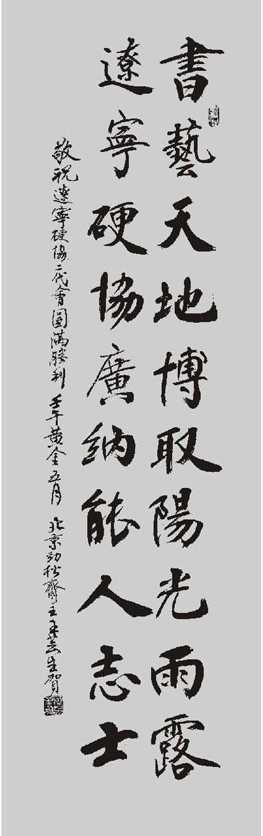 書藝天地博取陽光雨露
遼寧硬協廣納能人志士
敬祝遼寧硬協二代會圓滿勝利 壬午黃金五月 北京勁松齋主王芝生賀